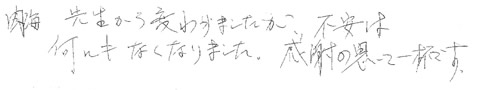 先生から変わりましたが、不安は
何にもなくなりました。感謝の思いで一杯です。